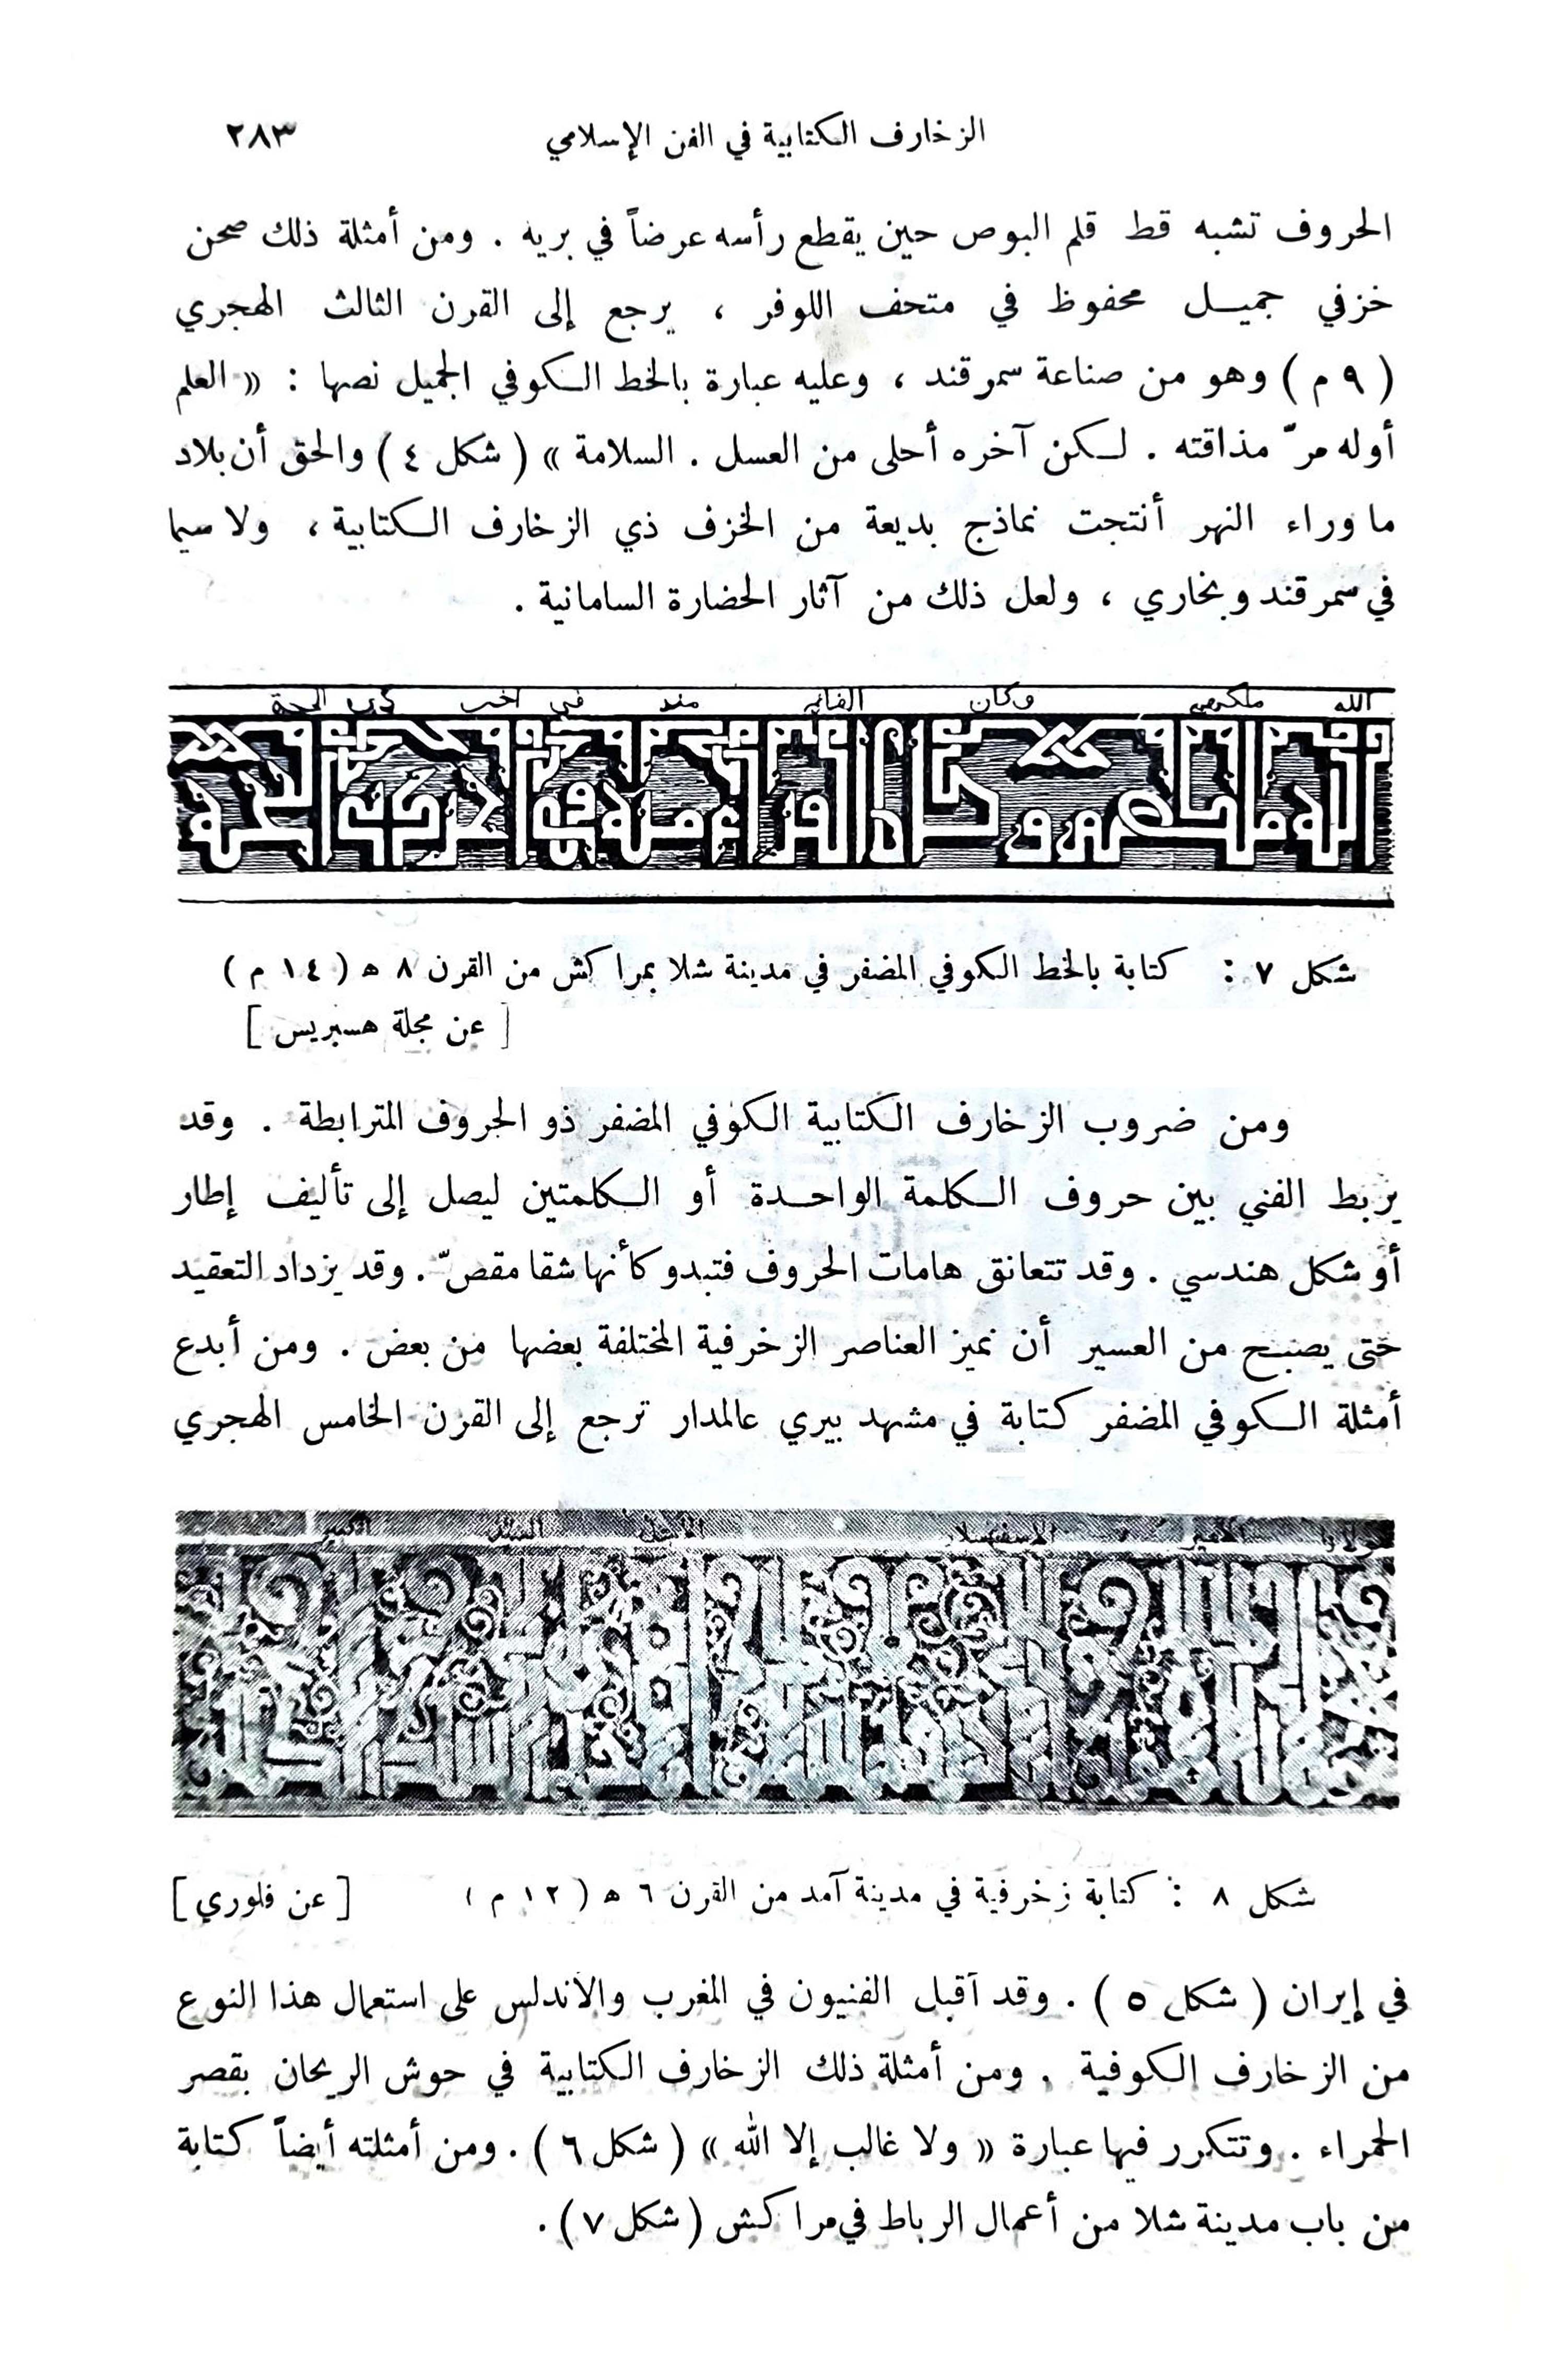 الزخارف الكتابية في الفن الإسلامي ٢٨٣
الحروف تشبه قط قلم البوص حين يقطع رأسه عرضاً في بريه . ومن أمثلة ذلك صحن
خزفي جميل محفوظ في متحف اللوفر ، يرجع إلى القرن الثالث الهجري
( ٩ م ) وهو من صناعة سمرقند ، وعليه عبارة بالخط الكوفي الجميل نصها : « العلم
أوله مرّ مذاقته . لكن آخره أحلى من العسل . السلامة » ( شكل ٤ ) والحق أن بلاد
ما وراء النهر أنتجت نماذج بديعة من الخزف ذي الزخارف الكتابية ، ولا سيما
في سمرقند وبخاري ، ولعل ذلك من آثار الحضارة السامانية .
الله وكان منه في
شكل ٧ : كتابة بالخط الكوفي المضفر في مدينة شلا بمراكش من القرن ٨ ه ( ١٤ م )
[ عن مجلة هسبريس ]
ومن ضروب الزخارف الكتابية الكوفي المضفر ذو الحروف المترابطة . وقد
يربط الفني بين حروف الكلمة الواحدة أو الكلمتين ليصل إلى تأليف إطار
أو شكل هندسي . وقد تتعانق هامات الحروف فتبدو كأنها شقا مقصّ . وقد يزداد التعقيد
حتى يصبح من العسير أن نميز العناصر الزخرفية المختلفة بعضها من بعض . ومن أبدع
أمثلة الكوفي المضفر كتابة في مشهد بيري عالمدار ترجع إلى القرن الخامس الهجري
مولانا الأمير الاسفهسلار السيد الكبير
شكل ٨ : كتابة زخرفية في مدينة آمد من القرن ٦ ه ( ١٢ م ) [ عن فلوري ]
في إيران ( شكل ٥ ) . وقد أقبل الفنيون في المغرب والأندلس على استعمال هذا النوع
من الزخارف الكوفية . ومن أمثلة ذلك الزخارف الكتابية في حوش الريحان بقصر
الحمراء . وتتكرر فيها عبارة « ولا غالب إلا الله » ( شكل ٦ ) . ومن أمثلته أيضاً كتابة
من باب مدينة شلا من أعمال الرباط في مراكش ( شكل ٧ ) .